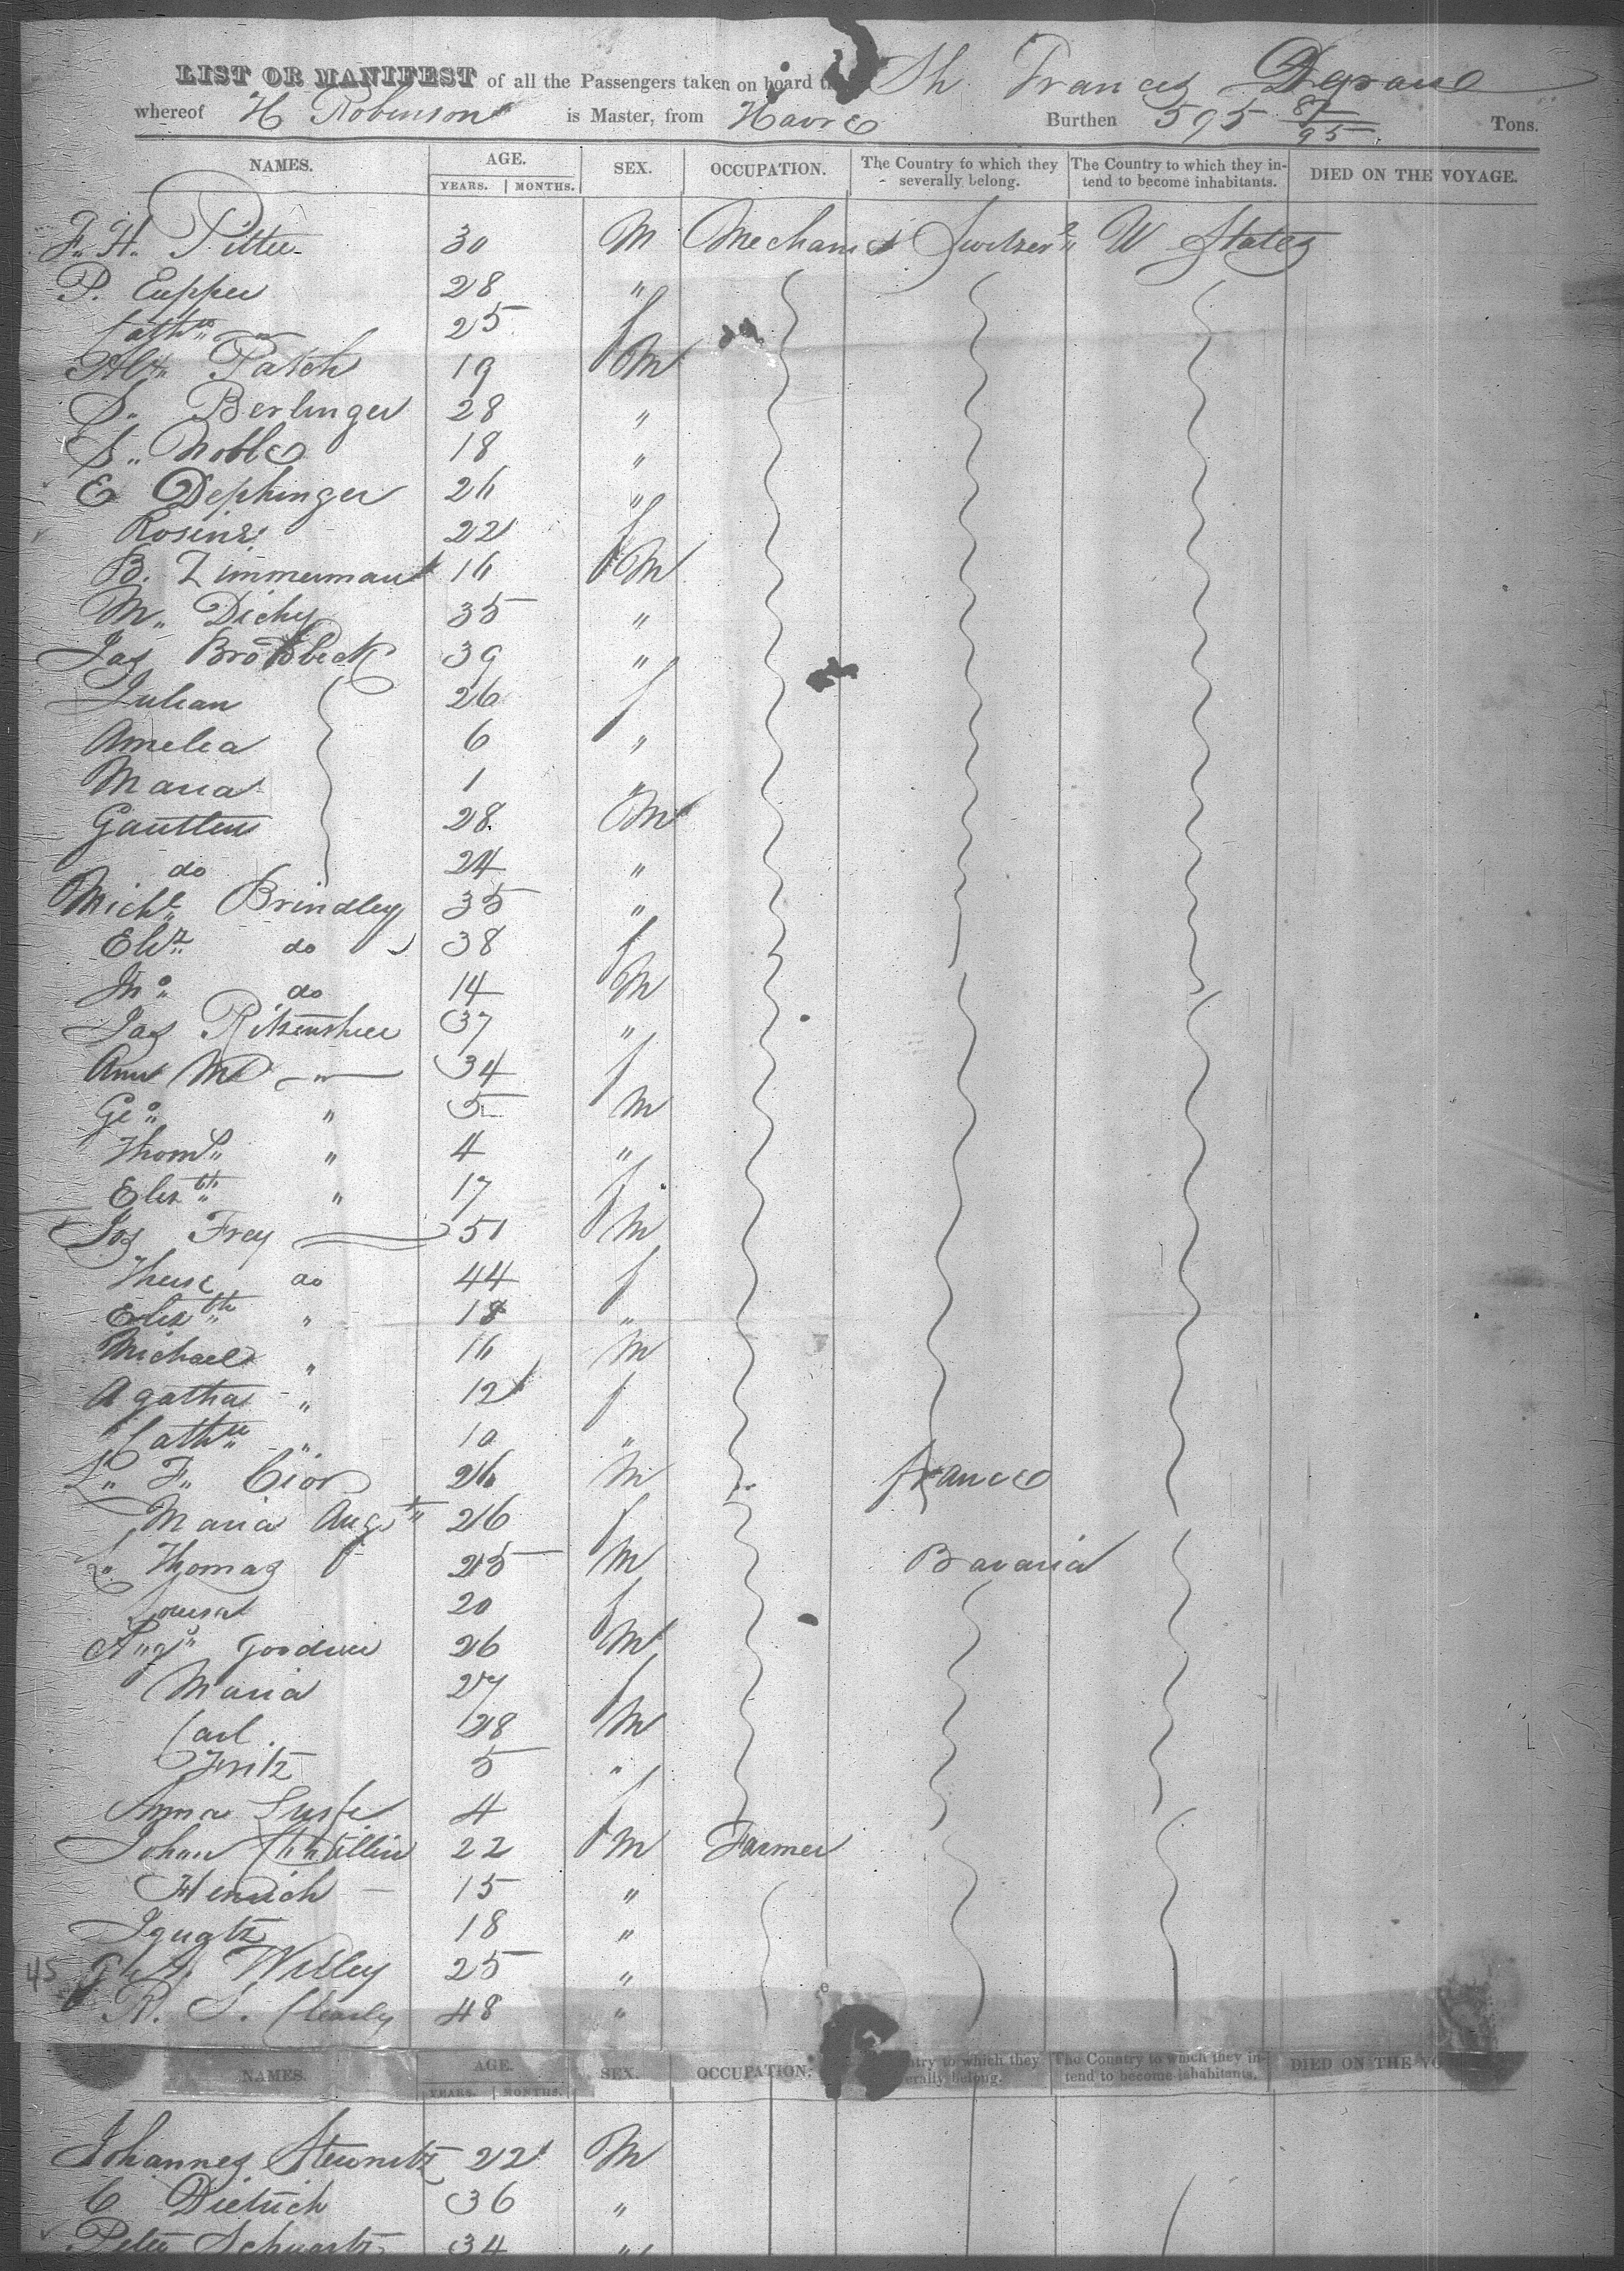 LIST OR MANIFEST of all the Passengers taken on board Sh Frances
whereof H Robinson is Master, from Havre Burthen 595 87/95 Tons.
NAMES. AGE. SEX. OCCUPATION. The Country to which they severally belong. The Country to which they intend to become inhabitants. DIED ON THE VOYAGE.
YEARS. MONTHS.
F. H. 30 M Mechanics States
P. 28 "
Cath 25 f
Patch 19 M
S. Berlinger 28 "
S. Noble 18 "
E Dephinger 26 "
Rosina 22 f
B. Zimmerman 16 M
M. Dichy 35 "
Jas 39 "
Julian 26 f
Amelia 6 "
Maria 1 "
28 M
do 24 "
Michl Brindley 35 "
Eliz do 38 f
Jno do 14 M
Jas 37 "
Ann M " 34 f
Geo " 5 M
Thoms " 4 "
Elizth " 17 f
Jos Frey 51 M
do 44 f
Elizth " 18 "
Michael " 16 M
Agatha " 12 f
Cath " 10 "
L. F. Cior 26 M France
Maria Augt 26 f
L. Thomas 25 M Bavaria
Louisa 20 f
Augs 26 M
Maria 27 f
Carl 28 M
Fritz 5 "
Anna 4 f
Johan 22 M Farmer
Henrich 15 "
Ignatz 18 "
45 Willey 25 "
R. S. 48 "
NAMES. AGE. SEX. OCCUPATION. try to which they erally belong. The Country to which they intend to become inhabitants. DIED ON THE VO
YEARS. MONTHS.
Johannes 22 M
C Dietrich 36 "
Peter Schwartz 34 "